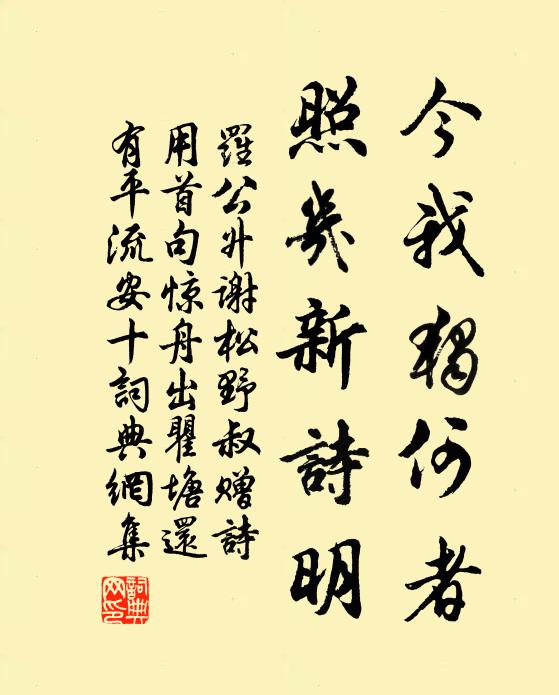 今我獨何者
照幾新詩明
羅公升謝松野叔贈詩
用首句惊舟出瞿塘還
有平流安十詞典網集
詞典